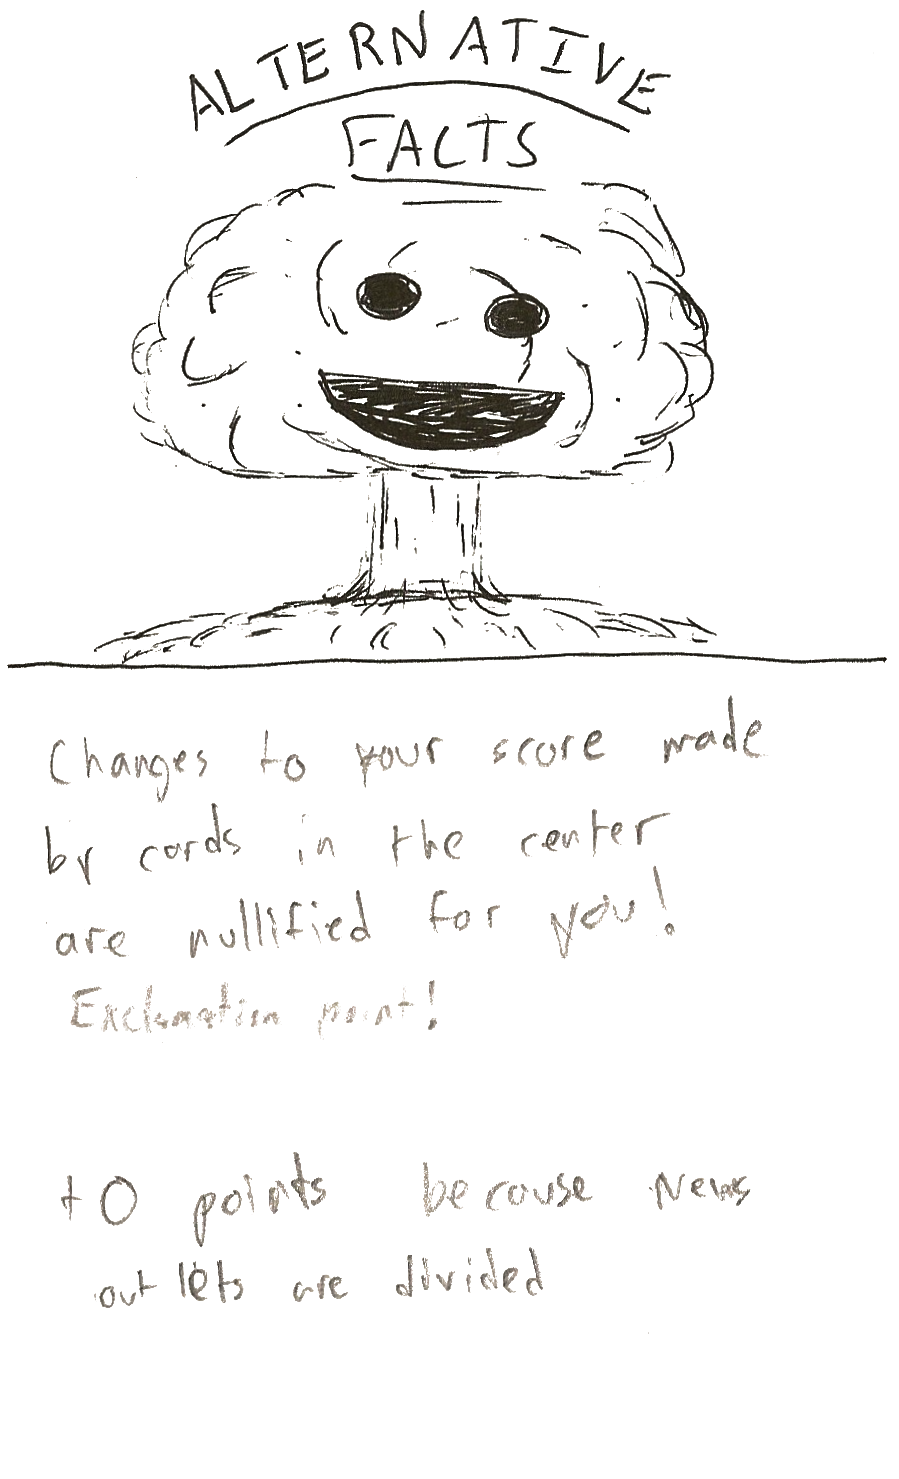 ALTERNATIVE
FACTS
Changes to your score made
by cards in the center
are nullified for you!
Exclamation point!
+0 points because News
outlets are divided